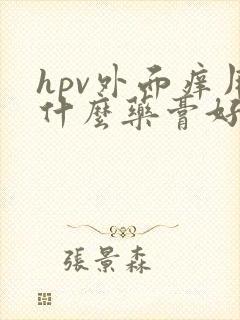 hpv外而痒用
什麼藥膏好
張景森